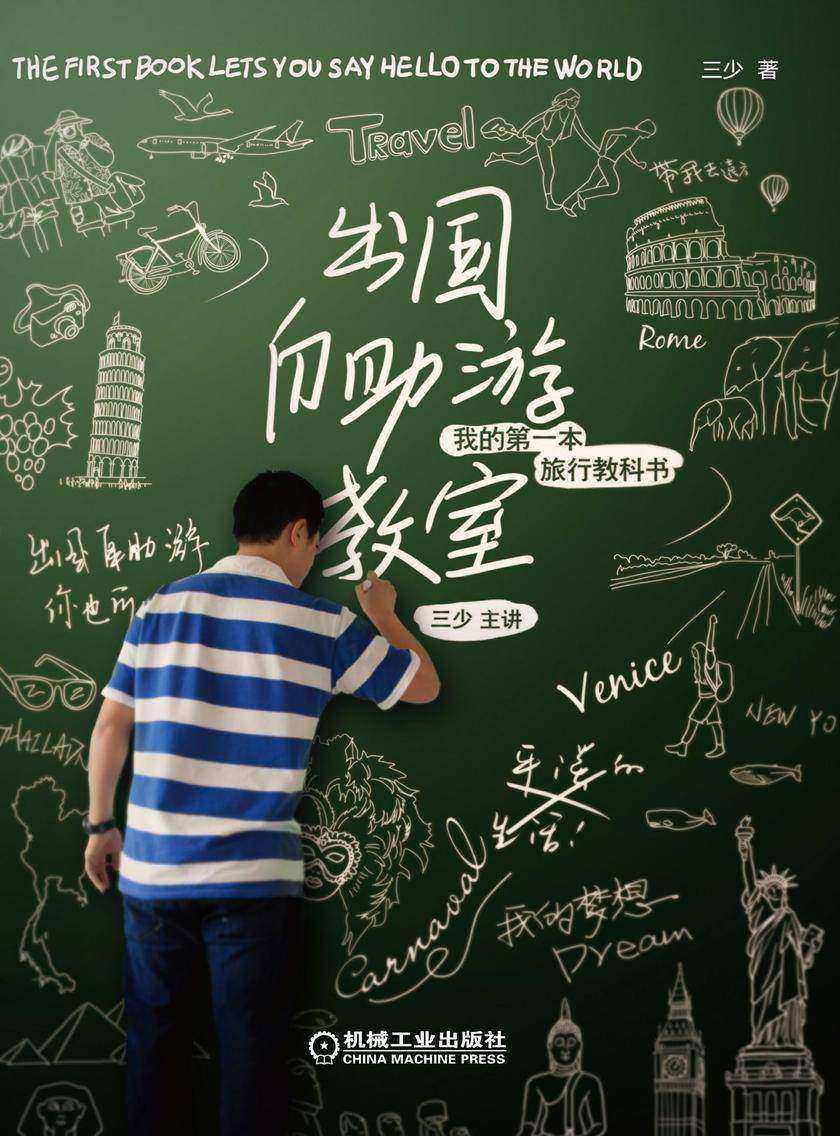 THE FIRST BOOK LETS YOU SAY HELLO TO THE WORLD
三少 著
Travel
带我去远方
出国
自助游
教室
Rome
我的第一本
旅行教科书
出国自助游
你也可
三少 主讲
Venice
THAILAN
NEW YO
平淡的
生活!
Carnaval
我的梦想
Dream
机械工业出版社
CHINA MACHINE PRESS